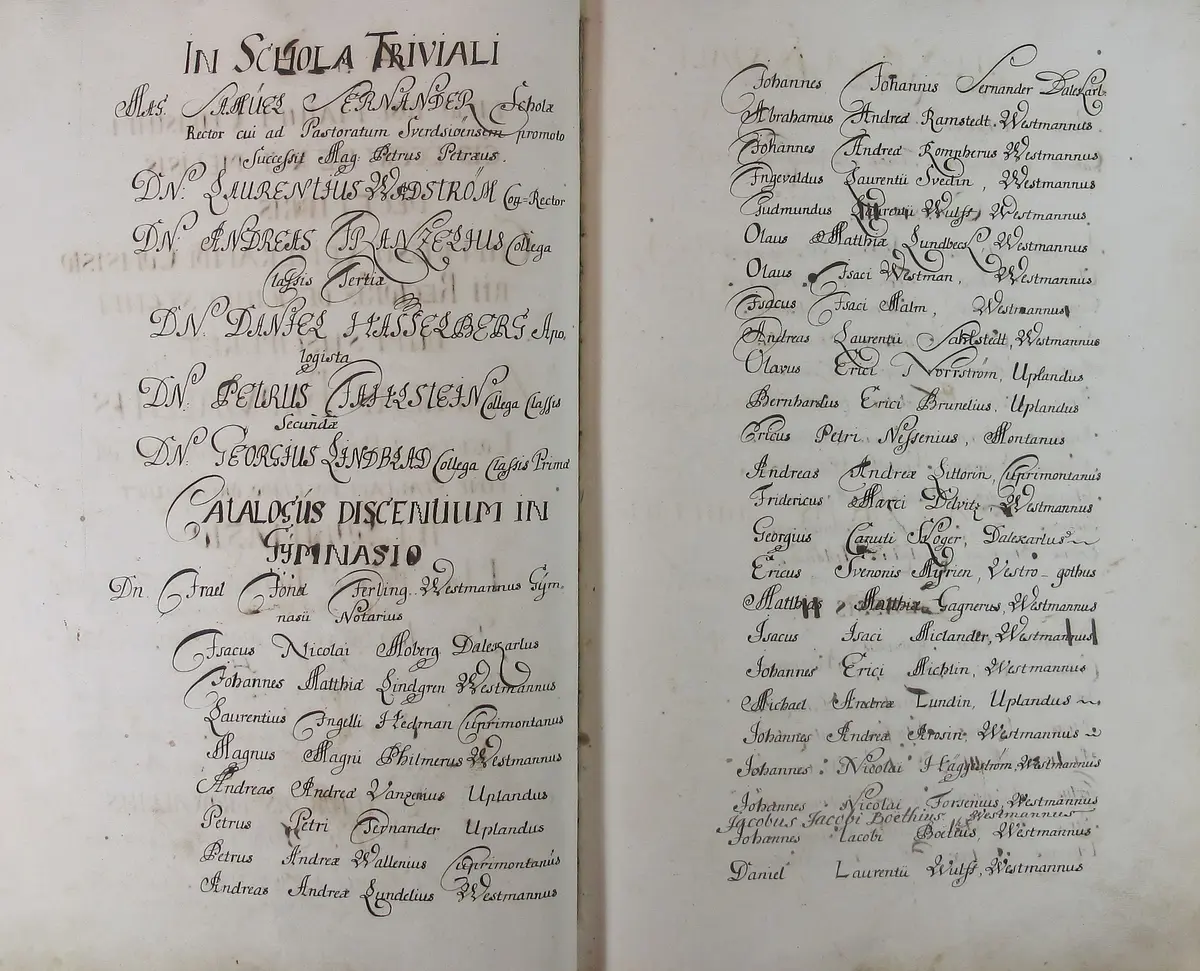 IN SCHOLA TRIVIALI
MAG. SAMUEL SERNANDER Scholæ
Rector cui ad Pastoratum Sverdsiöensem promoto
Successit Mag: Petrus Petræus.
DN. LAURENTIUS WADSTRÖM Con-Rector
DN. ANDREAS TRANZELIUS Collega
Classis Tertiæ
DN. DANIEL HASSELBERG Apo,
logista
DN. PETRUS FAHLSTEIN Collega Classis
Secundæ
DN. GEORGIUS LINDBLAD Collega Classis Primæ
CATALOGUS DISCENTIUM IN
GYMNASIO
Dn. Israel Jonæ Ferling. Westmannus Gym-
nasii Notarius
Isacus Nicolai Moberg Dalekarlus
Johannes Matthiæ Lindgren Westmannus
Laurentius Ingelli Hedman Cuprimontanus
Magnus Magni Philmerus Westmannus
Andreas Andreæ Vangenius Uplandus
Petrus Petri Fernander Uplandus
Petrus Andreæ Wallenius Cuprimontanus
Andreas Andreæ Lundelius Westmannus
Johannes Johannis Sernander Dalekarl.
Abrahamus Andreæ Ramstedt. Westmannus
Johannes Andreæ Rompherus Westmannus
Ingevaldus Laurentii Svedin, Westmannus
Gudmundus Laurentii Wulff, Westmannus
Olaus Matthiæ Lundbeck, Westmannus
Olaus Isaci Westman, Westmannus
Isacus Isaci Malm, Westmannus
Andreas Laurentii Sahlstedt, Westmannus
Olavus Erici Norrström, Uplandus
Bernhardus Erici Brunelius, Uplandus
Ericus Petri Nissenius, Montanus
Andreas Andreæ Littorin, Cuprimontanus
Fridericus Marci Delvitz, Westmannus
Georgius Canuti Höger, Dalekarlus
Ericus Svenonis Myrien, Vestro-gothus
Matthias Matthiæ Gagnerus, Westmannus
Isacus Isaci Miclander, Westmannus
Johannes Erici Michlin, Westmannus
Michael Andreæ Lundin, Uplandus
Johannes Andreæ Arosin, Westmannus
Johannes Nicolai Häggström, Westmannus
Johannes Nicolai Forsenius, Westmannus
Jacobus Jacobi Boethius Westmannus
Johannes Iacobi Boetius, Westmannus
Daniel Laurentii Wulff, Westmannus